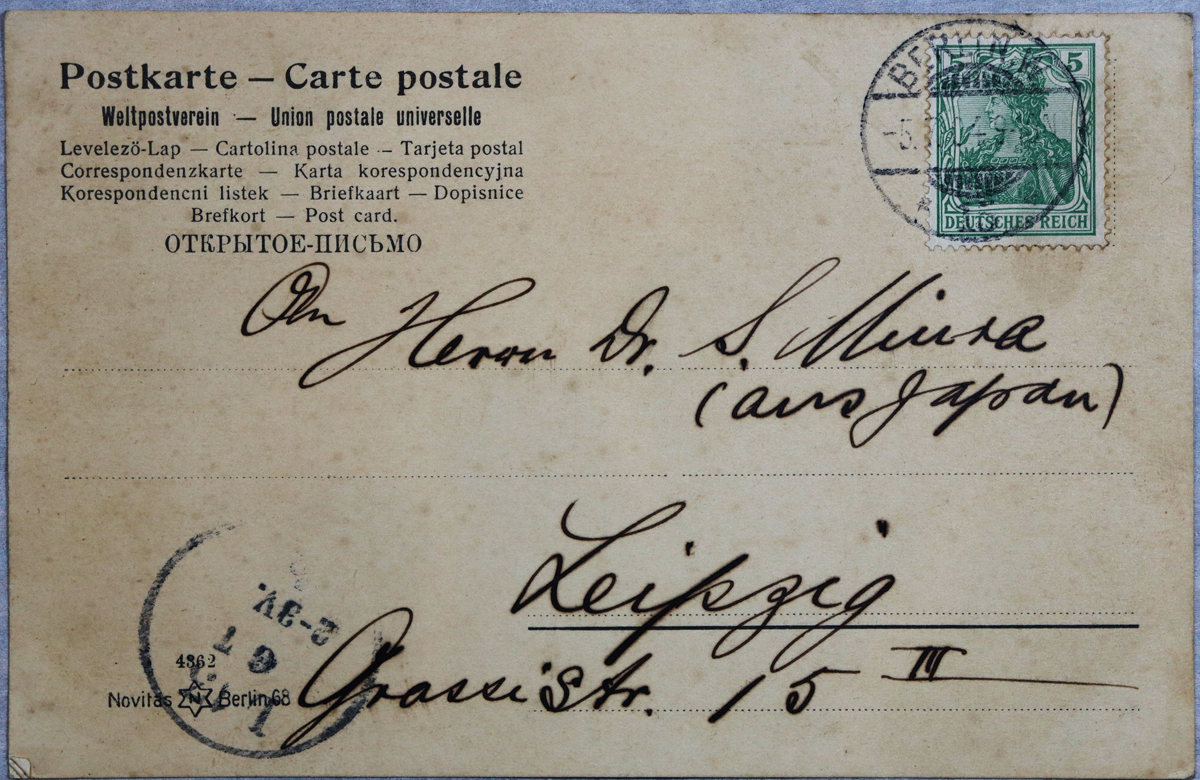 Postkarte — Carte postale
Weltpostverein — Union postale universelle
Levelező-Lap — Cartolina postale — Tarjeta postal
Correspondenzkarte — Karta korespondencyjna
Korespondencni listek — Briefkaart — Dopisnice
Brefkort — Post card.
ОТКРЫТОЕ-ПИСЬМО
BERLIN
5 5
DEUTSCHES REICH
Herrn Dr. S. Miura
(aus Japan)
Leipzig
Grassistr. 15 III
2-3V.
6 1
4362
Novitas N Berlin 68